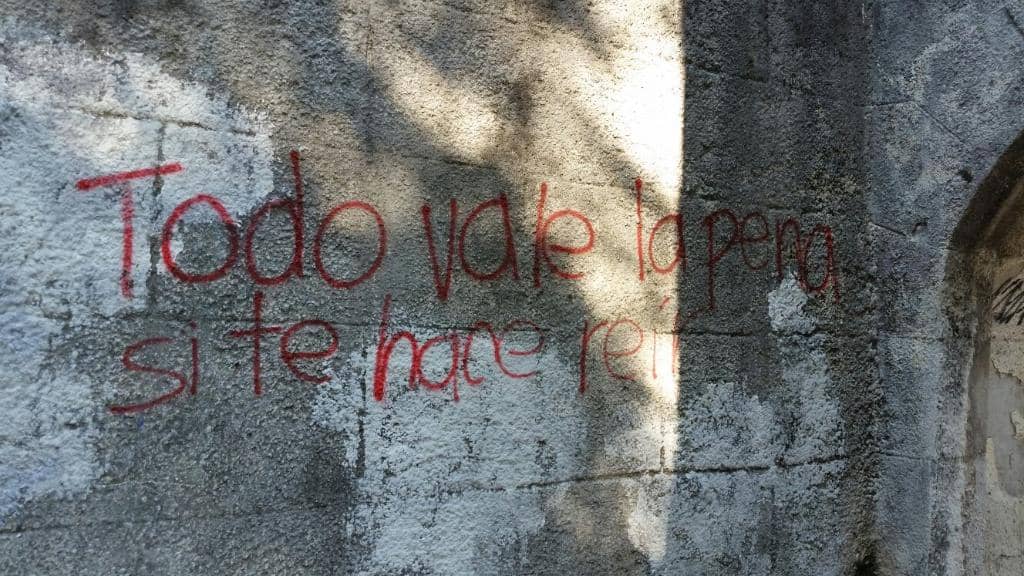 Todo vale la pena
si te hace reir